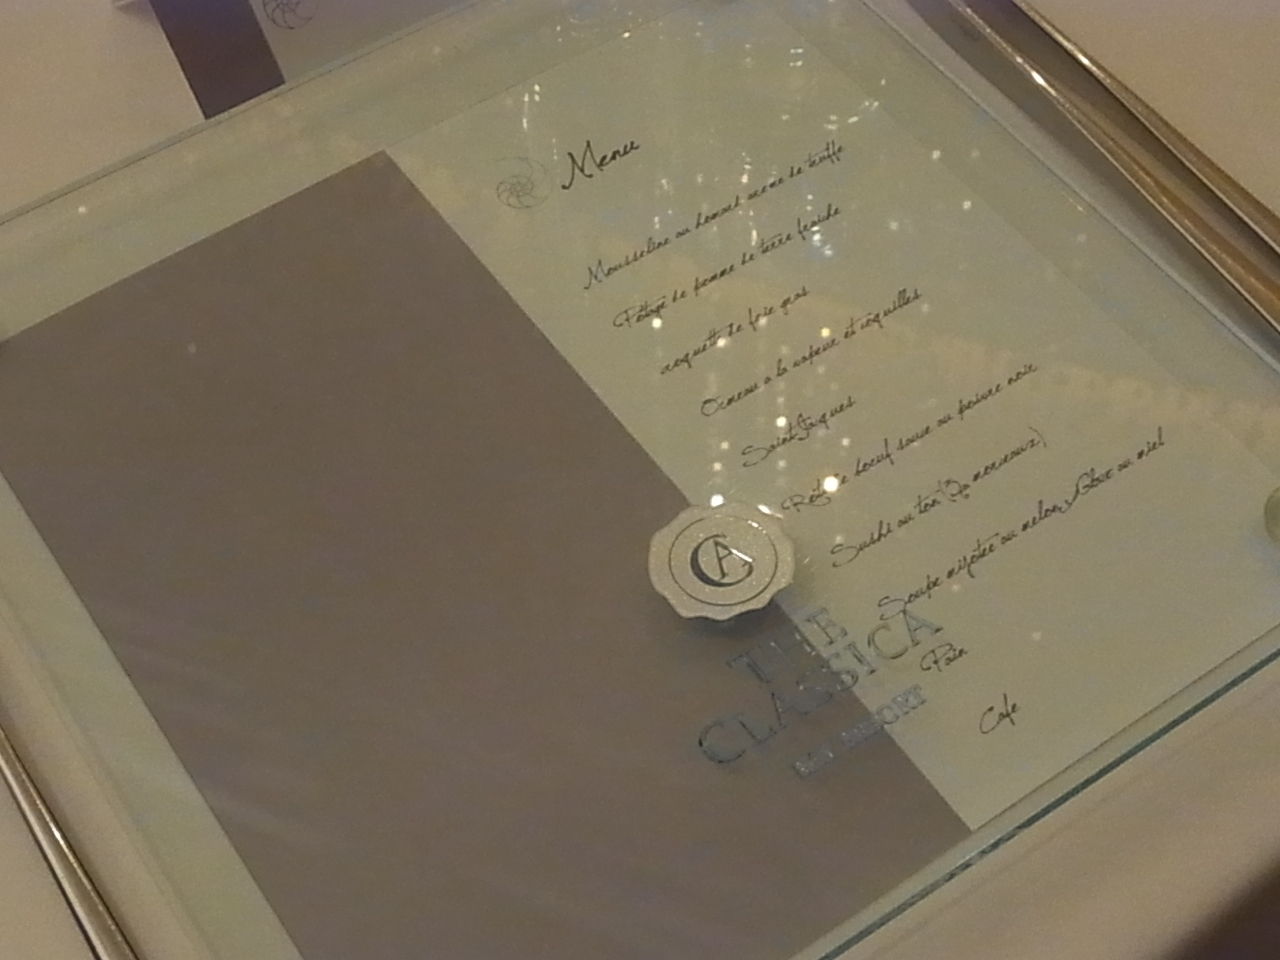 Menu
Mousseline au homard creme de truffe
Potage de pomme de terre fraiche
croquette de foie gras
Ormeau a la vapeur et coquilles
Saint Jaques
Roti de boeuf sauce au poivre noir
Sushi au ton morceaux)
Soupe mijotee au melon au miel
Pain
Cafe
CA
THE
CLASSICA
RESORT